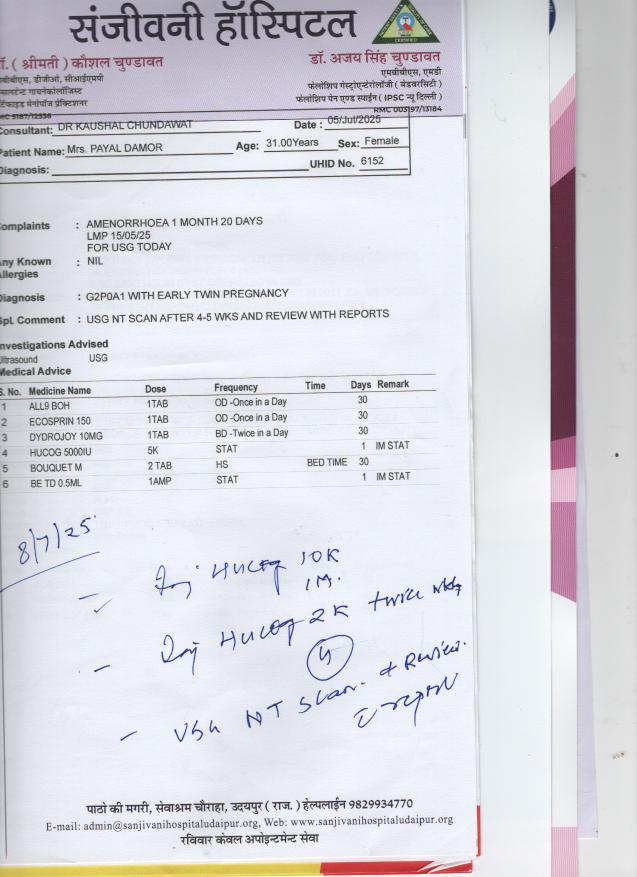 संजीवनी हॉस्पिटल
CERTIFIED
डॉ. ( श्रीमती ) कौशल चुण्डावत
डॉ. अजय सिंह चुण्डावत
एमबीबीएस, डीजीओ, सीआईएमपी
एमबीबीएस, एमडी
कन्सलटेन्ट गायनेकोलॉजिस्ट
फेलोशिप गेस्ट्रोएन्टेरोलॉजी ( मेडवरसिटी )
सर्टिफाइड मेनोपॉज प्रेक्टिशनर
फेलोशिप पेन एण्ड स्पाईन ( IPSC न्यू दिल्ली )
RMC 003197/13184
Consultant: DR KAUSHAL CHUNDAWAT Date : 05/Jul/2025
Patient Name: Mrs. PAYAL DAMOR Age: 31.00Years Sex: Female
Diagnosis: UHID No. 6152
omplaints : AMENORRHOEA 1 MONTH 20 DAYS
LMP 15/05/25
FOR USG TODAY
ny Known : NIL
llergies
iagnosis : G2P0A1 WITH EARLY TWIN PREGNANCY
SpL Comment : USG NT SCAN AFTER 4-5 WKS AND REVIEW WITH REPORTS
nvestigations Advised
ltrasound USG
Medical Advice
S. No. Medicine Name Dose Frequency Time Days Remark
1 ALL9 BOH 1TAB OD -Once in a Day 30
2 ECOSPRIN 150 1TAB OD -Once in a Day 30
3 DYDROJOY 10MG 1TAB BD -Twice in a Day 30
4 HUCOG 5000IU 5K STAT 1 IM STAT
5 BOUQUET M 2 TAB HS BED TIME 30
6 BE TD 0.5ML 1AMP STAT 1 IM STAT
8/7/25
- Inj HUCOG 10K
IM.
- Inj HUCOG 2K twice wkly
- USG NT Scan & Review
report
पाठो की मगरी, सेवाश्रम चौराहा, उदयपुर ( राज. ) हेल्पलाईन 9829934770
E-mail: admin@sanjivanihospitaludaipur.org, Web: www.sanjivanihospitaludaipur.org
रविवार केवल अपोइन्टमेन्ट सेवा